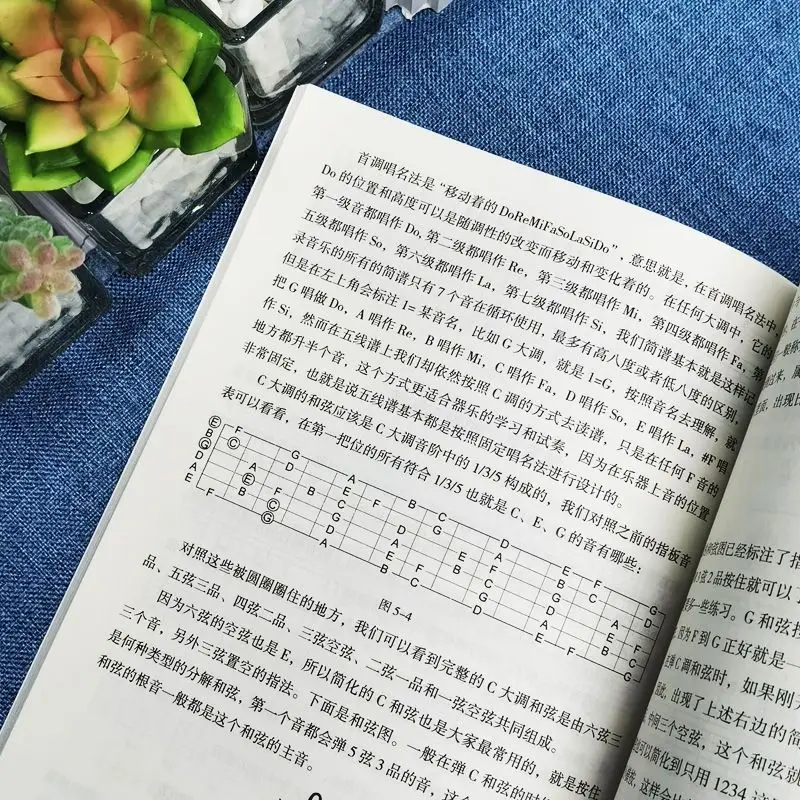 首调唱名法是“移动着的DoReMiFaSoLaSiDo”,意思就是,在首调唱名法中,
Do 的位置和高度可以是随调性的改变而移动和变化着的。在任何大调中,它的
第一级音都唱作 Do,第二级都唱作 Re,第三级都唱作 Mi,第四级都唱作 Fa,第
五级都唱作 So,第六级都唱作 La,第七级都唱作 Si,我们简谱基本就是这样记
录音乐的所有的简谱只有 7 个音在循环使用,最多有高八度或者低八度的区别,
但是在左上角会标注 1= 某音名,比如 G 大调,就是 1=G,按照音名去理解,就
把 G 唱做 Do,A 唱作 Re,B 唱作 Mi,C 唱作 Fa,D 唱作 So,E 唱作 La,#F 唱
作 Si,然而在五线谱上我们却依然按照 C 调的方式去读谱,只是在任何 F 音的
地方都升半个音,这个方式更适合器乐的学习和试奏,因为在乐器上音的位置
非常固定,也就是说五线谱基本都是按照固定唱名法进行设计的。
C 大调的和弦应该是 C 大调音阶中的 1/3/5 构成的,我们对照之前的指板音
表可以看看,在第一把位的所有符合 1/3/5 也就是 C、E、G 的音有哪些:
E F G A B C D E F G
B C D E F G A B C D
G A B C D E F G
D E F G A B C D
A B C D E F G A
E F G A B C D E F G
图 5-4
对照这些被圆圈圈住的地方,我们可以看到完整的 C 大调和弦是由六弦三
品、五弦三品、四弦二品、三弦空弦、二弦一品和一弦空弦共同组成。
因为六弦的空弦也是 E,所以简化的 C 和弦也是大家最常用的,就是按住
三个音,另外三弦置空的指法。下面是和弦图。一般在弹 C 和弦的时
是何种类型的分解和弦,第一个音都会弹 5 弦 3 品的音,这
和弦的根音一般都是这个和弦的主音。
出现比
弦图已经标注了指
弦2品按住就可以了
多一些练习。G 和弦
因为 F 到 G 正好就是一
C调和弦时,如果刚
出现了上述右边的简
中间三个空弦,这个和弦就
可以简化到只用 1234 这